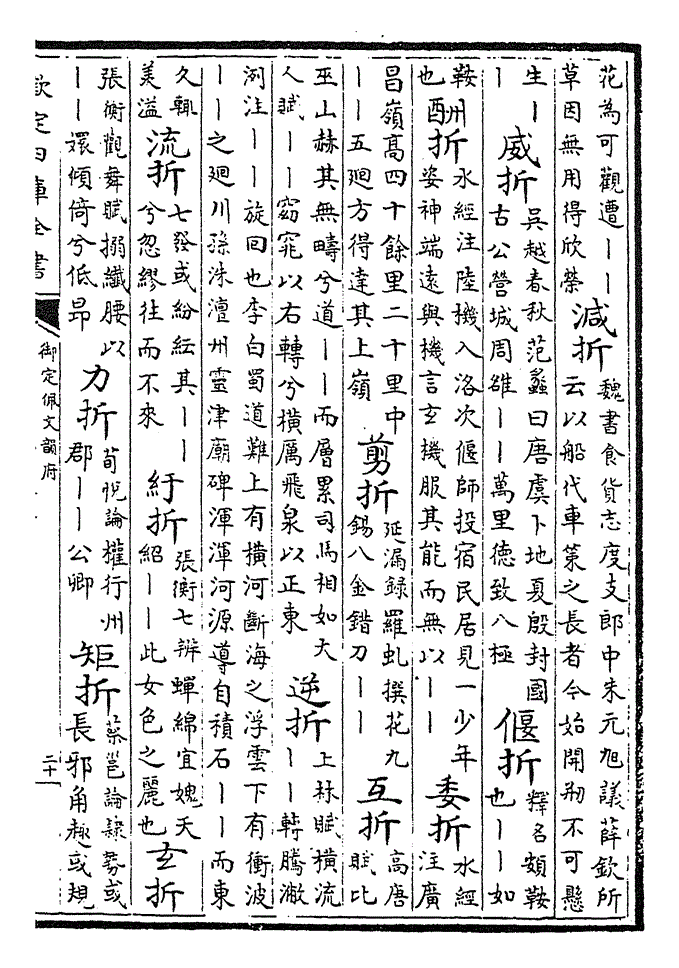 花為可觀遭丨丨草因無用得欣榮 減折 魏書食貨志度支郎中朱元旭議薛欽所云以船代車策之長者今始開刱不可懸
生丨丨 威折 吳越春秋范蠡曰唐虞卜地夏殷封國古公營城周雒丨丨萬里德致八極 偃折 釋名頞鞍也丨丨如
鞍也 酬折 水經注陸機入洛次偃師投宿民居見一少年姿神端遠與機言玄機服其能而無以丨丨 委折 水經注廣
昌嶺高四十餘里二十里中丨丨五廻方得達其上嶺 剪折 延漏錄羅虬撰花九錫八金錯刀丨丨 互折 高唐賦比
巫山赫其無疇兮道丨丨而層累司馬相如大人賦丨丨窈窕以右轉兮橫厲飛泉以正東 逆折 上林賦橫流丨丨轉騰潎
洌注丨丨旋回也李白蜀道難上有橫河斷海之浮雲下有衝波丨丨之廻川孫洙澶州靈津廟碑渾渾河源導自積石丨丨而東
久輒美溢 流折 七發或紛紜其丨丨兮忽繆往而不來 紆折 張衡七辨蟬綿宜媿夭紹丨丨此女色之麗也 玄折
張衡觀舞賦搦纖腰以丨丨嬛傾倚兮低昻 力折 荀悅論權行州郡丨丨公卿 矩折 蔡邕論隸勢或長邪角趣或規
欽定四庫全書
御定佩文韻府
二十